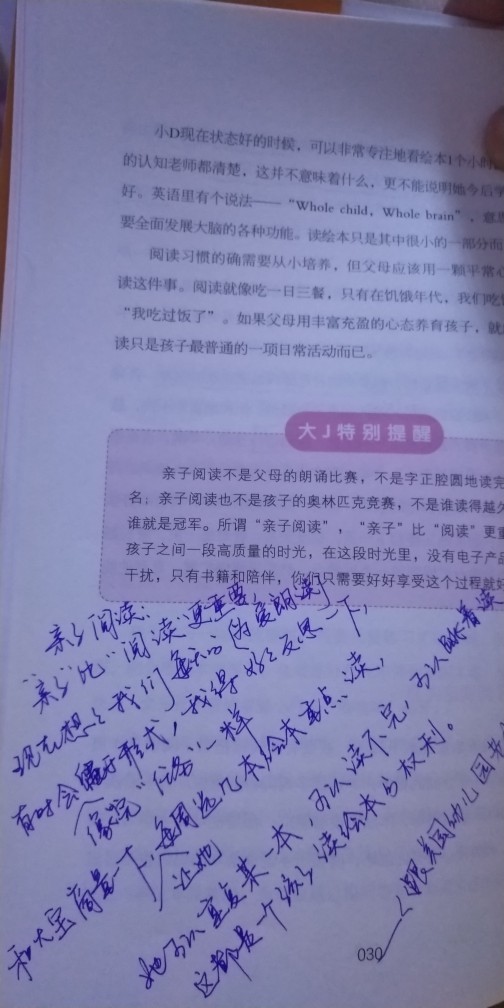 小D现在状态好的时候，可以非常专注地看绘本1个小时
的认知老师都清楚，这并不意味着什么，更不能说明她今后
好。英语里有个说法——“Whole child，Whole brain”，意
要全面发展大脑的各种功能。读绘本只是其中很小的一部分而
阅读习惯的确需要从小培养，但父母应该用一颗平常心
读这件事。阅读就像吃一日三餐，只有在饥饿年代，我们吃
“我吃过饭了”。如果父母用丰富充盈的心态养育孩子，就
读只是孩子最普通的一项日常活动而已。
大J特别提醒
亲子阅读不是父母的朗诵比赛，不是字正腔圆地读完
名；亲子阅读也不是孩子的奥林匹克竞赛，不是谁读得越
谁就是冠军。所谓“亲子阅读”，“亲子”比“阅读”更
孩子之间一段高质量的时光，在这段时光里，没有电子产品
干扰，只有书籍和陪伴，你们只需要好好享受这个过程就
亲子阅读：
“亲子”比“阅读”更重要，
现在想想我们每天的（的爱朗读）
有时会 于形式，我得好好反思一下，
像完“任务”一样
和大宝商量一下，每周选几本绘本重点读，
让她
她可以重复某一本，可以读不完，可以跳着读
这都是一个孩子读绘本的权利。
——《跟美国幼儿园
030